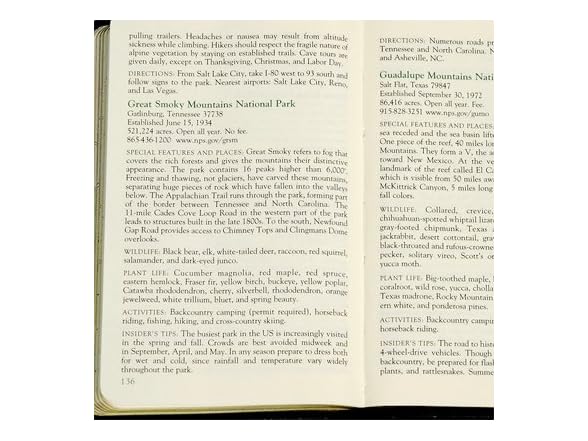 pulling trailers. Headaches or nausea may result from altitude
sickness while climbing. Hikers should respect the fragile nature of
alpine vegetation by staying on established trails. Cave tours are
given daily, except on Thanksgiving, Christmas, and Labor Day.
DIRECTIONS: From Salt Lake City, take I-80 west to 93 south and
follow signs to the park. Nearest airports: Salt Lake City, Reno,
and Las Vegas.
Great Smoky Mountains National Park
Gatlinburg, Tennessee 37738
Established June 15, 1934
521,224 acres. Open all year. No fee.
865-436-1200 www.nps.gov/grsm
SPECIAL FEATURES AND PLACES: Great Smoky refers to fog that
covers the rich forests and gives the mountains their distinctive
appearance. The park contains 16 peaks higher than 6,000'.
Freezing and thawing, not glaciers, have carved these mountains,
separating huge pieces of rock which have fallen into the valleys
below. The Appalachian Trail runs through the park, forming part
of the border between Tennessee and North Carolina. The
11-mile Cades Cove Loop Road in the western part of the park
leads to structures built in the late 1800s. To the south, Newfound
Gap Road provides access to Chimney Tops and Clingmans Dome
overlooks.
WILDLIFE: Black bear, elk, white-tailed deer, raccoon, red squirrel,
salamander, and dark-eyed junco.
PLANT LIFE: Cucumber magnolia, red maple, red spruce,
eastern hemlock, Fraser fir, yellow birch, buckeye, yellow poplar,
Catawba rhododendron, cherry, silverbell, rhododendron, orange
jewelweed, white trillium, bluet, and spring beauty.
ACTIVITIES: Backcountry camping (permit required), horseback
riding, fishing, hiking, and cross-country skiing.
INSIDER'S TIPS: The busiest park in the US is increasingly visited
in the spring and fall. Crowds are best avoided midweek and
in September, April, and May. In any season prepare to dress both
for wet and cold, since rainfall and temperature vary widely
throughout the park.
136
DIRECTIONS: Numerous roads pr
Tennessee and North Carolina. N
and Asheville, NC.
Guadalupe Mountains Nati
Salt Flat, Texas 79847
Established September 30, 1972
86,416 acres. Open all year. Fee.
915-828-3251 www.nps.gov/gumo
SPECIAL FEATURES AND PLACES:
sea receded and the sea basin lifte
One piece of the reef, 40 miles lon
Mountains. They form a V, the a
toward New Mexico. At the ve
landmark of the reef called El Ca
which is visible from 50 miles aw
McKittrick Canyon, 5 miles long
fall colors.
WILDLIFE: Collared, crevice,
chihuahuan-spotted whiptail lizar
gray-footed chipmunk, Texas a
jackrabbit, desert cottontail, gray
black-throated and rufous-crowne
pecker, solitary vireo, Scott's or
yucca moth.
PLANT LIFE: Big-toothed maple,
coralroot, wild rose, yucca, cholla
Texas madrone, Rocky Mountain
ern white, and ponderosa pines.
ACTIVITIES: Backcountry campi
horseback riding.
INSIDER'S TIPS: The road to histo
4-wheel-drive vehicles. Though
backcountry, be prepared for flash
plants, and rattlesnakes. Summe